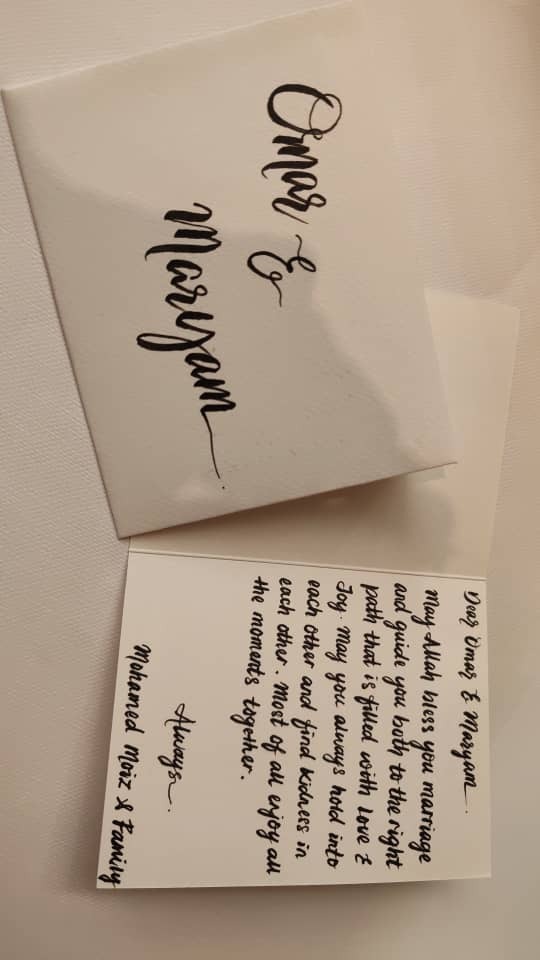 Omar &
Maryam
Dear Omar & Maryam
May Allah bless you marriage
and guide you both to the right
path that is filled with Love &
Joy. May you always hold into
each other and find kidness in
each other. Most of all enjoy all
the moments together.
Always.
Mohamed Moiz & Family